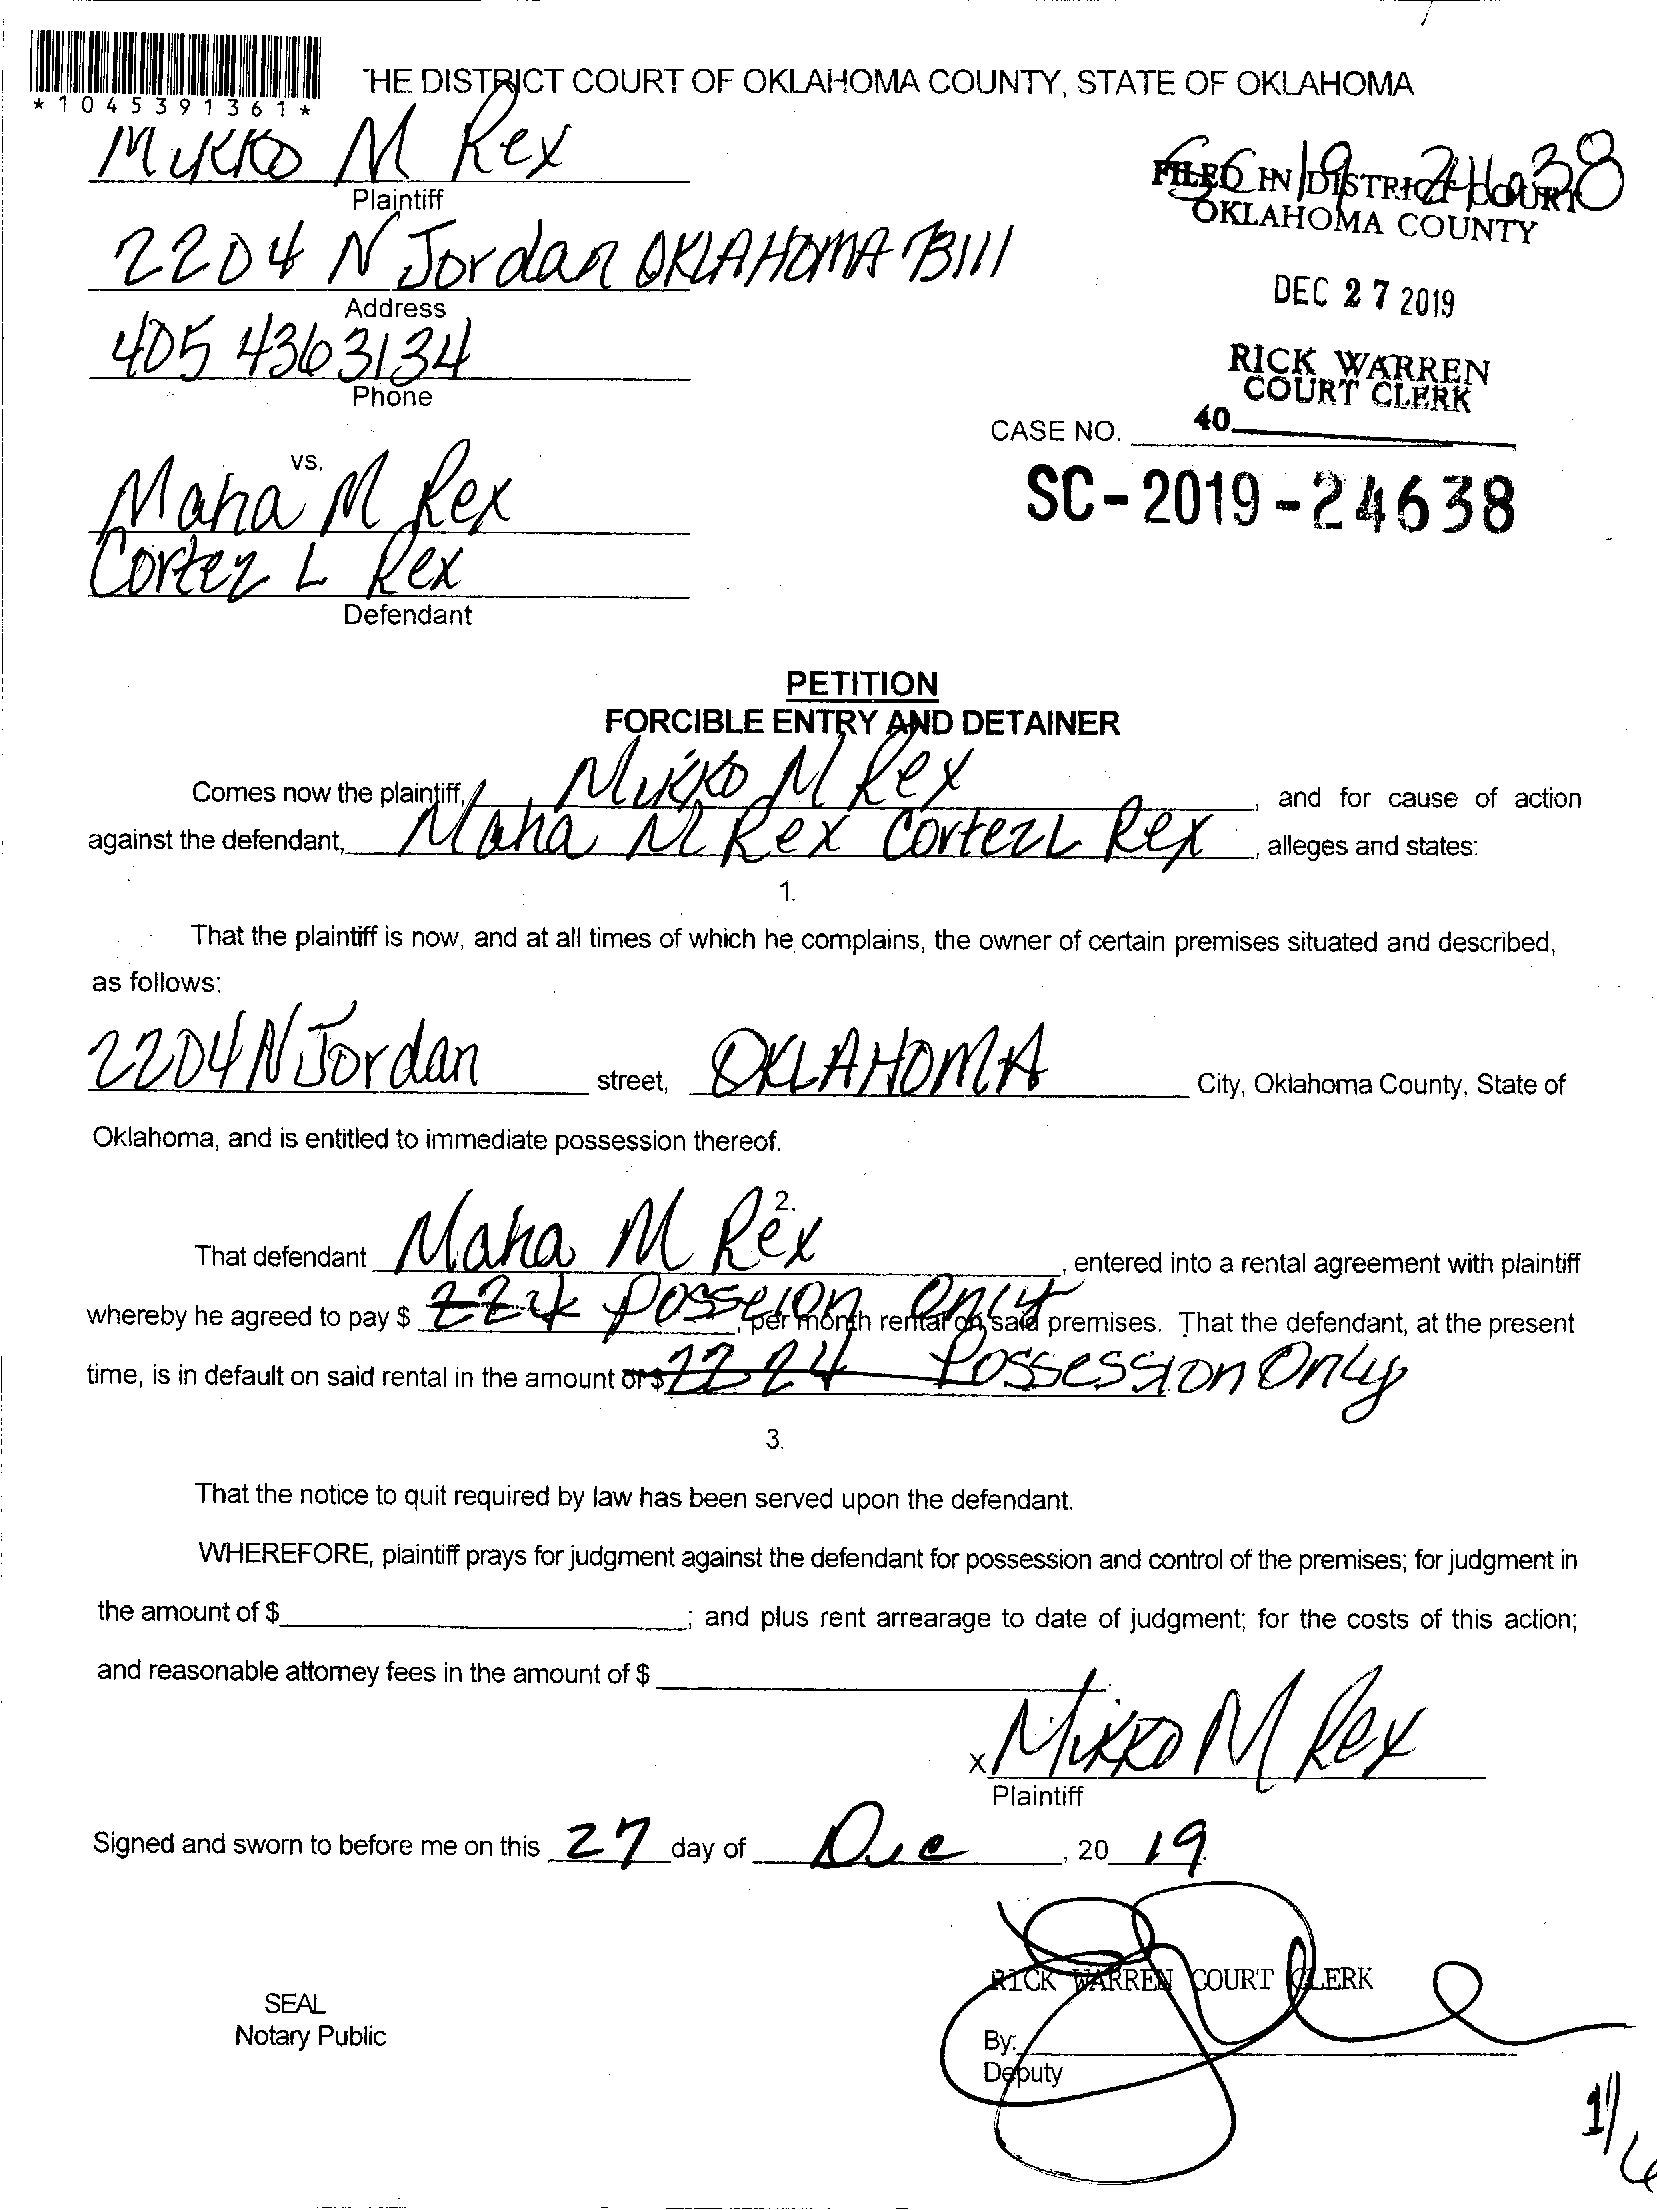 *1045391361*
THE DISTRICT COURT OF OKLAHOMA COUNTY, STATE OF OKLAHOMA
Mikko M Rex
Plaintiff
SC 19 24638
FILED IN DISTRICT COURT
OKLAHOMA COUNTY
2204 N Jordan OKLAHOMA 73111
Address
DEC 27 2019
405 436 3134
Phone
RICK WARREN
COURT CLERK
CASE NO. 40
vs.
SC-2019-24638
Maha M Rex
Cortez L Rex
Defendant
PETITION
FORCIBLE ENTRY AND DETAINER
Comes now the plaintiff, Mikko M Rex, and for cause of action
against the defendant, Maha M Rex Cortez L Rex, alleges and states:
1.
That the plaintiff is now, and at all times of which he complains, the owner of certain premises situated and described,
as follows:
2204 N Jordan street, OKLAHOMA City, Oklahoma County, State of
Oklahoma, and is entitled to immediate possession thereof.
2.
That defendant Maha M Rex, entered into a rental agreement with plaintiff
whereby he agreed to pay $ Possesion Only, per month rental on said premises. That the defendant, at the present
time, is in default on said rental in the amount of $ Possession Only
3.
That the notice to quit required by law has been served upon the defendant.
WHEREFORE, plaintiff prays for judgment against the defendant for possession and control of the premises; for judgment in
the amount of $ ; and plus rent arrearage to date of judgment; for the costs of this action;
and reasonable attorney fees in the amount of $
x Mikko M Rex
Plaintiff
Signed and sworn to before me on this 27 day of Dec, 20 19.
RICK WARREN COURT CLERK
SEAL
Notary Public
By:
Deputy